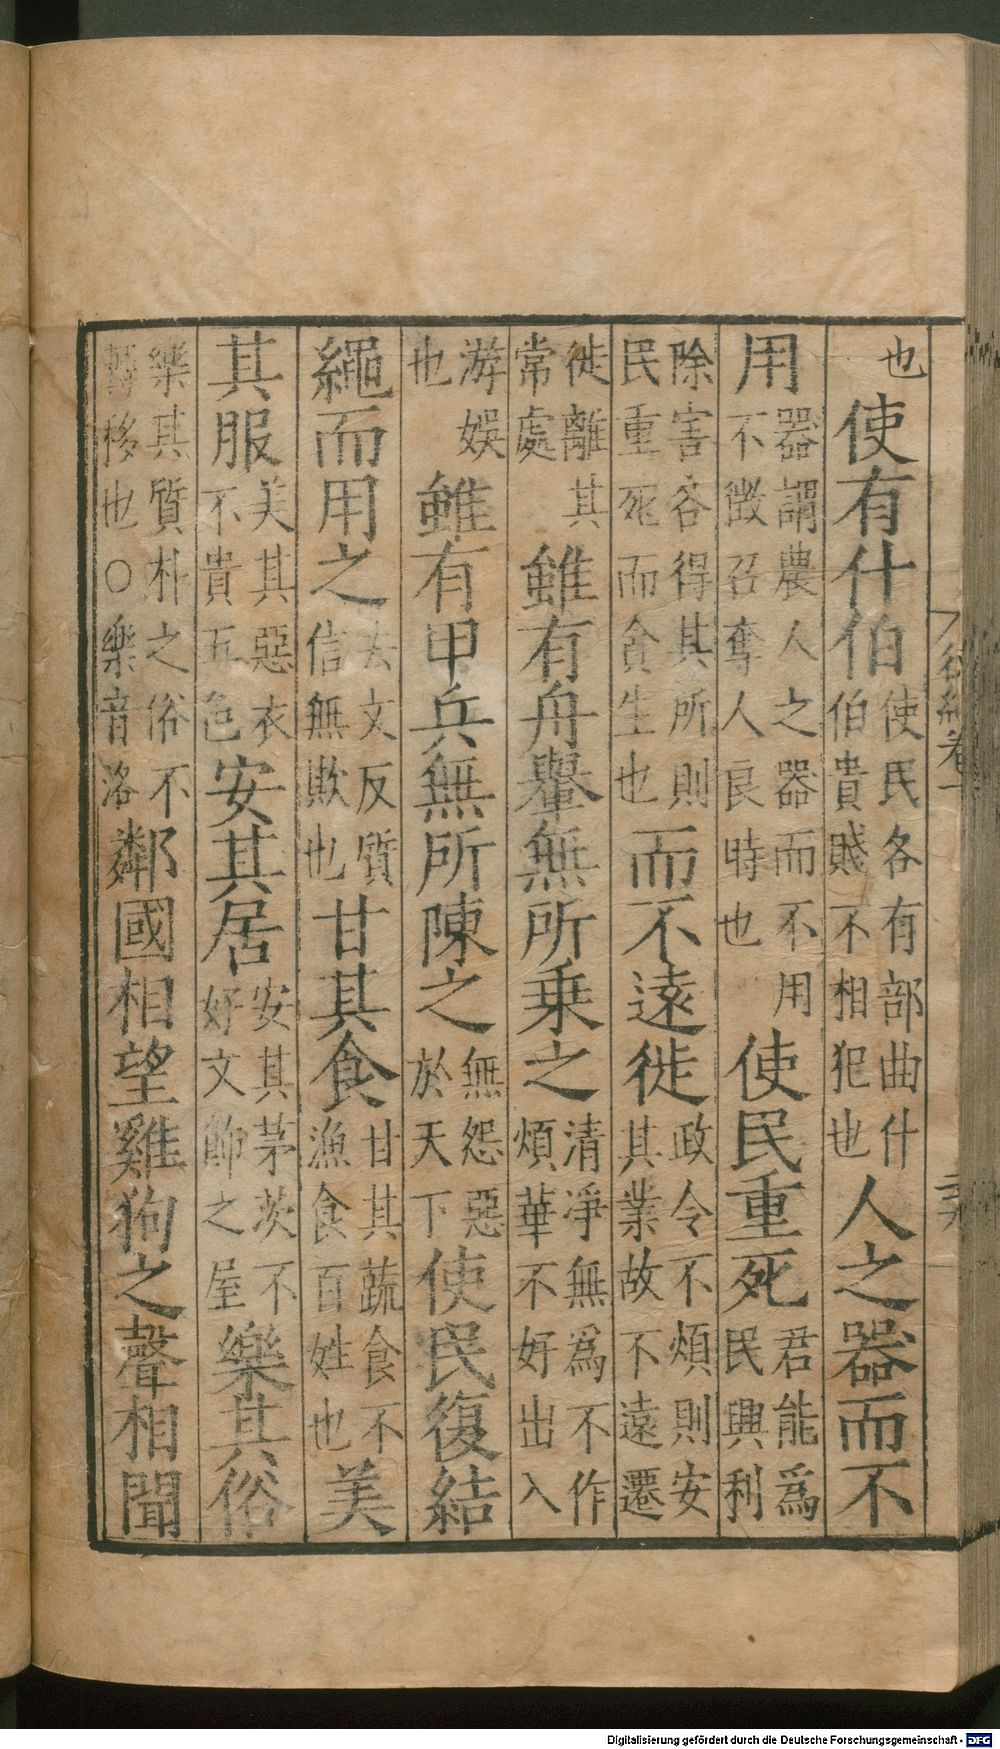 也使有什伯使民各有部曲什伯貴賤不相犯也人之器而不
用器謂農人之器而不用不徴召奪人良時也使民重死君能爲民興利
除害各得其所則民重死而貪生也而不遠徙政令不煩則安其業故不遠遷
徙離其常處雖有舟轝無所乗之清淨無爲不作煩華不好出入
游娛也雖有甲兵無所陳之無怨惡於天下使民復結
繩而用之去文反質信無欺也甘其食甘其蔬食不漁食百姓也美
其服美其惡衣不貴五色安其居安其茅茨不好文飾之屋樂其俗
樂其質朴之俗不轉移也○樂音洛鄰國相望雞狗之聲相聞
後經卷一
二十六
Digitalisierung gefördert durch die Deutsche Forschungsgemeinschaft - DFG